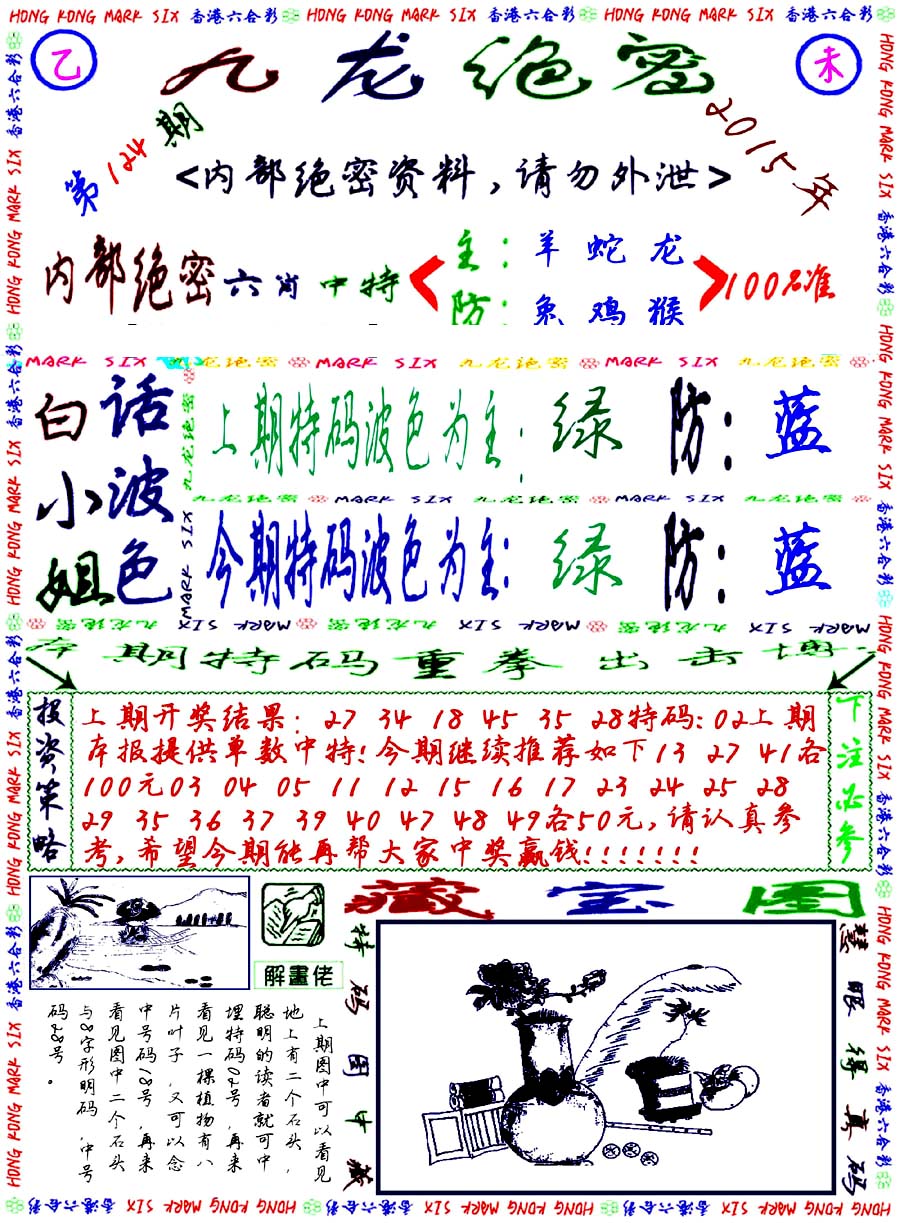 HONG KONG MARK SIX 香港六合彩 HONG KONG MARK SIX 香港六合彩 HONG KONG MARK SIX 香港六合彩
乙
九龙绝密
未
第124期
2015年
<内部绝密资料,请勿外泄>
内部绝密六肖中特
主:羊 蛇 龙
防:兔 鸡 猴
100%准
MARK SIX 九龙绝密 MARK SIX 九龙绝密 MARK SIX 九龙绝密
白话小姐
波色
上期特码波色为主:绿 防:蓝
九龙绝密 MARK SIX 九龙绝密 MARK SIX 九龙绝密
今期特码波色为主:绿 防:蓝
九龙绝密 MARK SIX 九龙绝密 MARK SIX 九龙绝密 MARK SIX
本期特码重拳出击博
投资策略
上期开奖结果: 27 34 18 45 35 28特码:02上期
本报提供单数中特!今期继续推荐如下13 27 41各
100元03 04 05 11 12 15 16 17 23 24 25 28
29 35 36 37 39 40 47 48 49各50元,请认真参
考,希望今期能再帮大家中奖赢钱!!!!!!!
下注必参
藏宝图
解畫佬
特码图中藏
慧眼得真码
上期图中可以看见
地上有二个石头,
聪明的读者就可中
埋特码02号,再来
看见一棵植物有八
片叶子,又可以念
中号码18号,再来
看见图中二个石头
与8字形明码,中号
码28号。
HONG KONG MARK SIX 香港六合彩 HONG KONG MARK SIX 香港六合彩 HONG KONG MARK SIX 香港六合彩